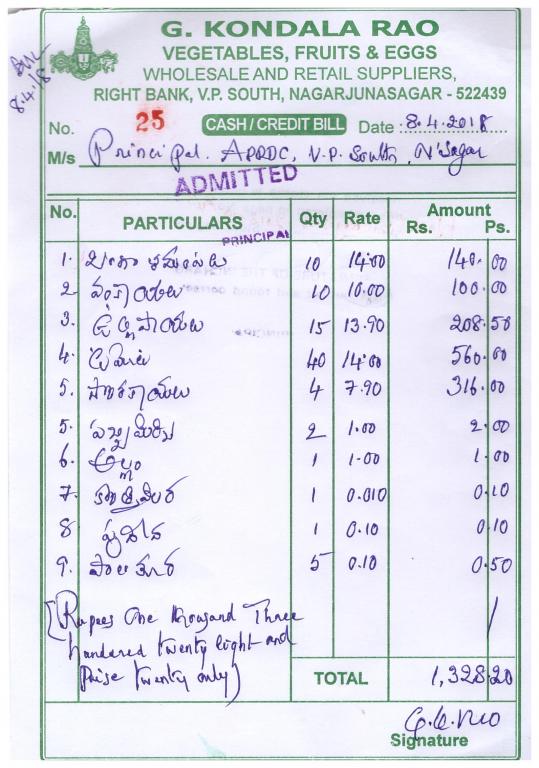 G. KONDALA RAO
VEGETABLES, FRUITS & EGGS
WHOLESALE AND RETAIL SUPPLIERS,
RIGHT BANK, V.P. SOUTH, NAGARJUNASAGAR - 522439
8.4.18
No. 25 CASH / CREDIT BILL Date : 8.4.2018
M/s Principal. APRDC, V.P South, N'Sagar
ADMITTED
PRINCIPAL
No. PARTICULARS Qty Rate Amount
Rs. Ps.
1. బంగాళదుంపలు 10 14.00 140.00
2 వంకాయలు 10 10.00 100.00
3. ఉల్లిపాయలు 15 13.90 208.50
4. టమోటా 40 14.00 560.00
5. 4 7.90 316.00
5. పచ్చిమిర్చి 2 1.00 2.00
6. అల్లం 1 1.00 1.00
7. కొత్తిమీర 1 0.010 0.10
8 పుదీన 1 0.10 0.10
9. పాలకూర 5 0.10 0.50
(Rupees One thousand Three
handered twenty light and
Paise twenty only)
TOTAL 1,328.20
G.K.Rao
Signature